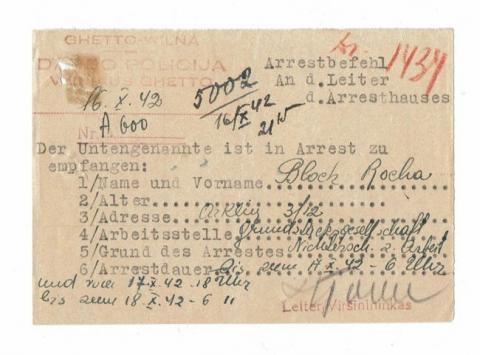 GHETTO-WILNA
POLICIJA
GHETTO
Nr. 1434
Arrestbefehl
An d. Leiter
d. Arresthauses
16. X. 42
A 600
5002
16/X 42
21 15
Nr.
Der Untengenannte ist in Arrest zu
empfangen:
1/Name und Vorname Bloch Rocha
2/Alter
3/Adresse 3/12
4/Arbeitsstelle
5/Grund des Arrestes z. Arbeit
6/Arrestdauer Bis zum 17 X. 42 - 6 Uhr
und von 17 X. 42 18 Uhr
bis zum 18 X. 42 - 6 "
Leiter-Viršininkas